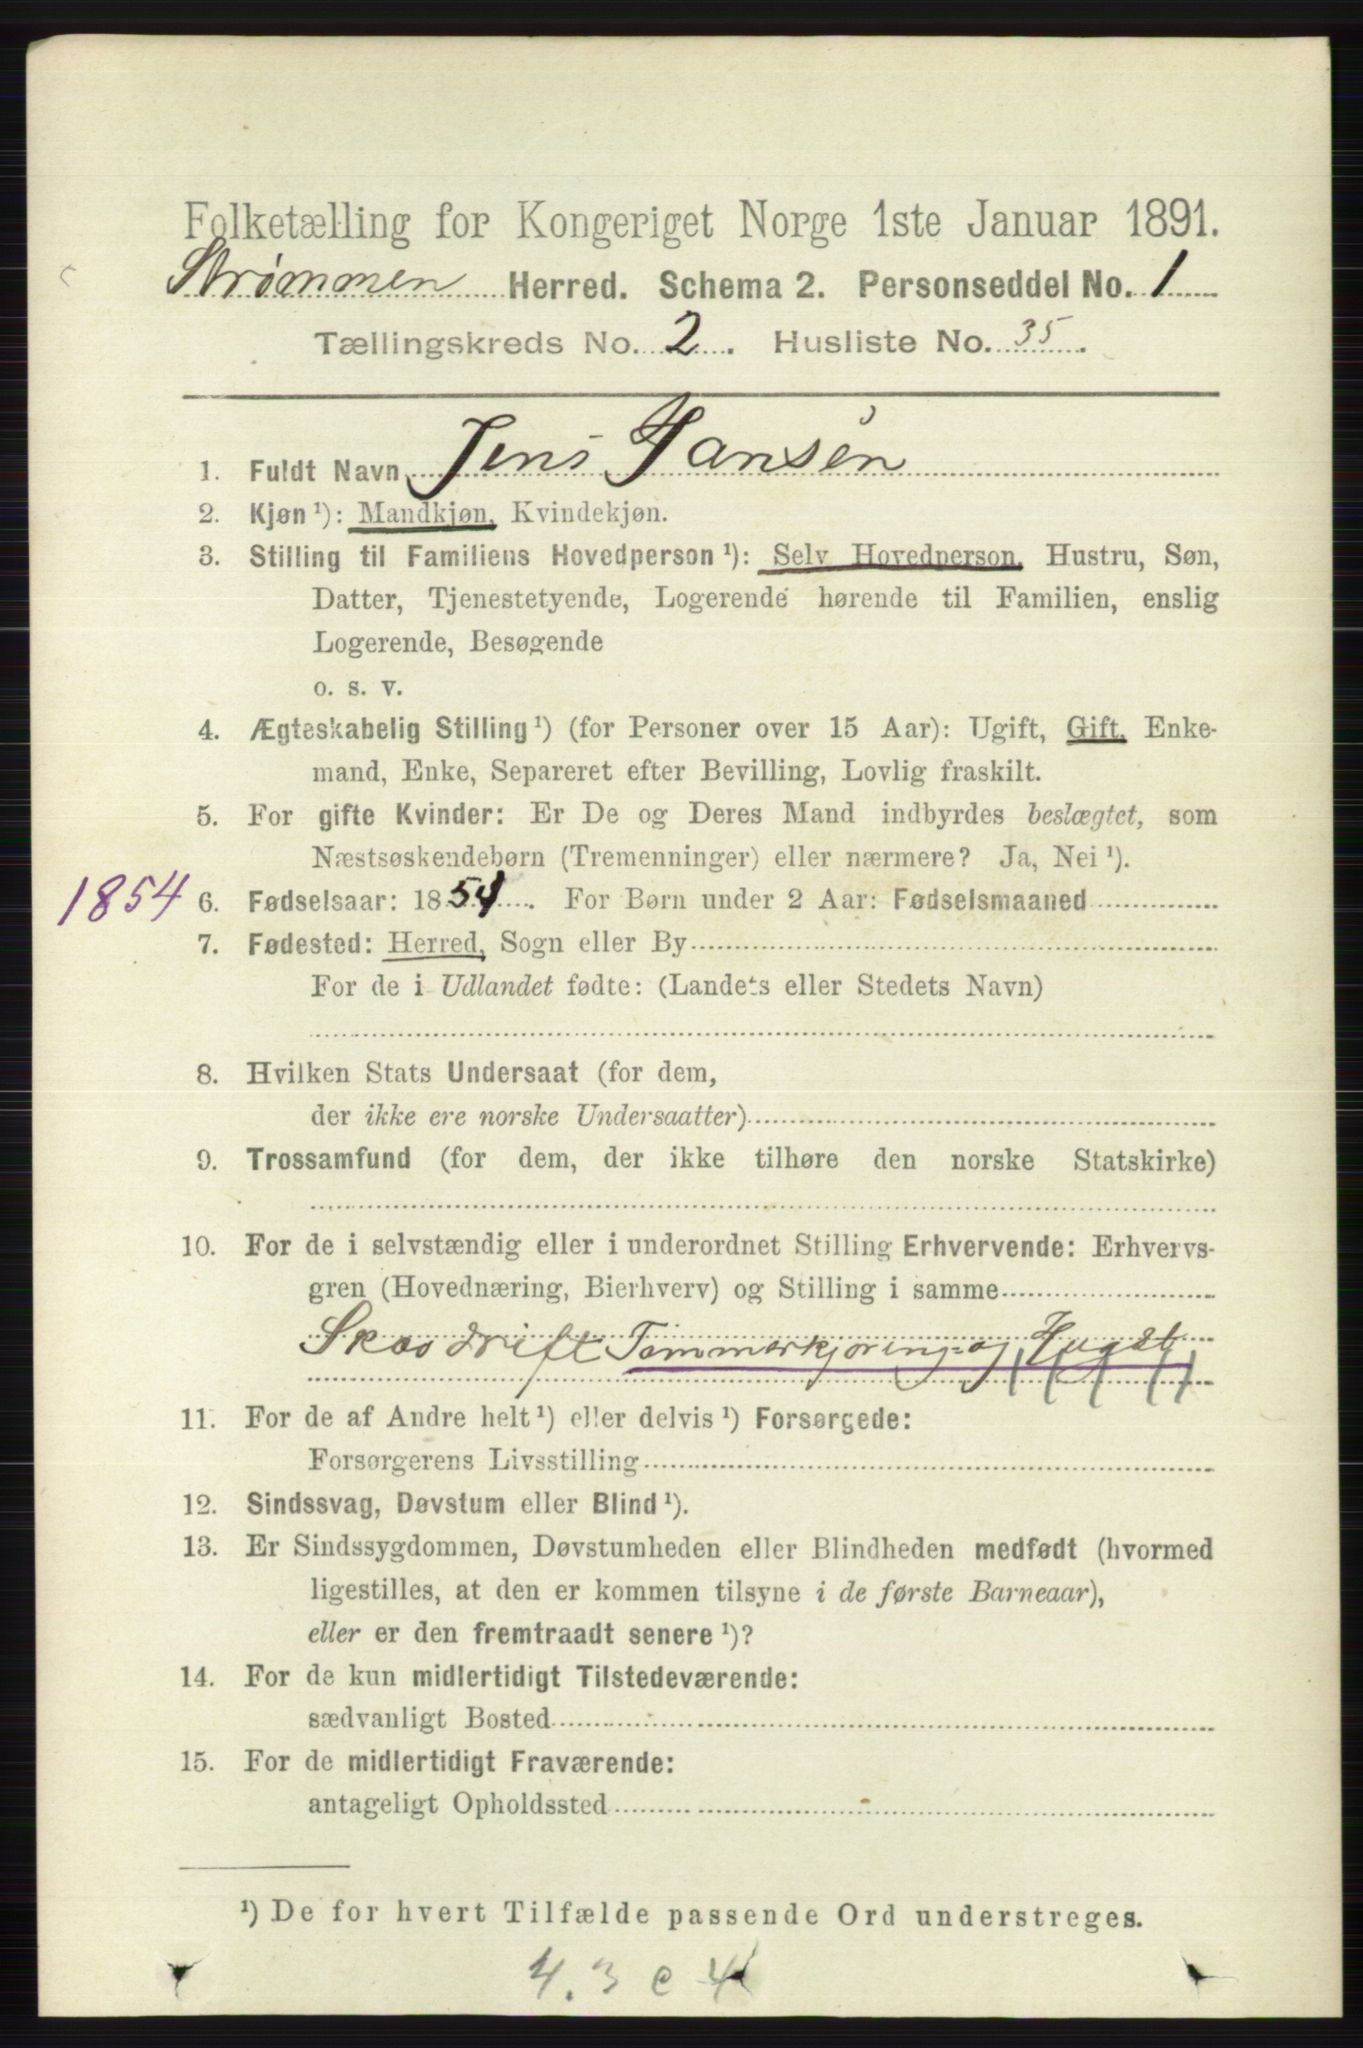 Folketælling for Kongeriget Norge 1ste Januar 1891.
Strømmen Herred. Schema 2. Personseddel No. 1
Tællingskreds No. 2. Husliste No. 35.
1. Fuldt Navn Jens Hansen
2. Kjøn ¹): Mandkjøn, Kvindekjøn.
3. Stilling til Familiens Hovedperson ¹): Selv Hovedperson, Hustru, Søn,
Datter, Tjenestetyende, Logerende hørende til Familien, enslig
Logerende, Besøgende
o. s. v.
4. Ægteskabelig Stilling ¹) (for Personer over 15 Aar): Ugift, Gift, Enke-
mand, Enke, Separeret efter Bevilling, Lovlig fraskilt.
5. For gifte Kvinder: Er De og Deres Mand indbyrdes beslægtet, som
Næstsøskendebørn (Tremenninger) eller nærmere? Ja, Nei ¹).
1854 6. Fødselsaar: 1854. For Børn under 2 Aar: Fødselsmaaned
7. Fødested: Herred, Sogn eller By
For de i Udlandet fødte: (Landets eller Stedets Navn)
8. Hvilken Stats Undersaat (for dem,
der ikke ere norske Undersaatter)
9. Trossamfund (for dem, der ikke tilhøre den norske Statskirke)
10. For de i selvstændig eller i underordnet Stilling Erhvervende: Erhvervs-
gren (Hovednæring, Bierhverv) og Stilling i samme
Skovdrift Tømmerkjøring og Hugst
11. For de af Andre helt ¹) eller delvis ¹) Forsørgede:
Forsørgerens Livsstilling
12. Sindssvag, Døvstum eller Blind ¹).
13. Er Sindssygdommen, Døvstumheden eller Blindheden medfødt (hvormed
ligestilles, at den er kommen tilsyne i de første Barneaar),
eller er den fremtraadt senere ¹)?
14. For de kun midlertidigt Tilstedeværende:
sædvanligt Bosted
15. For de midlertidigt Fraværende:
antageligt Opholdssted
¹) De for hvert Tilfælde passende Ord understreges.
4.3 c 4